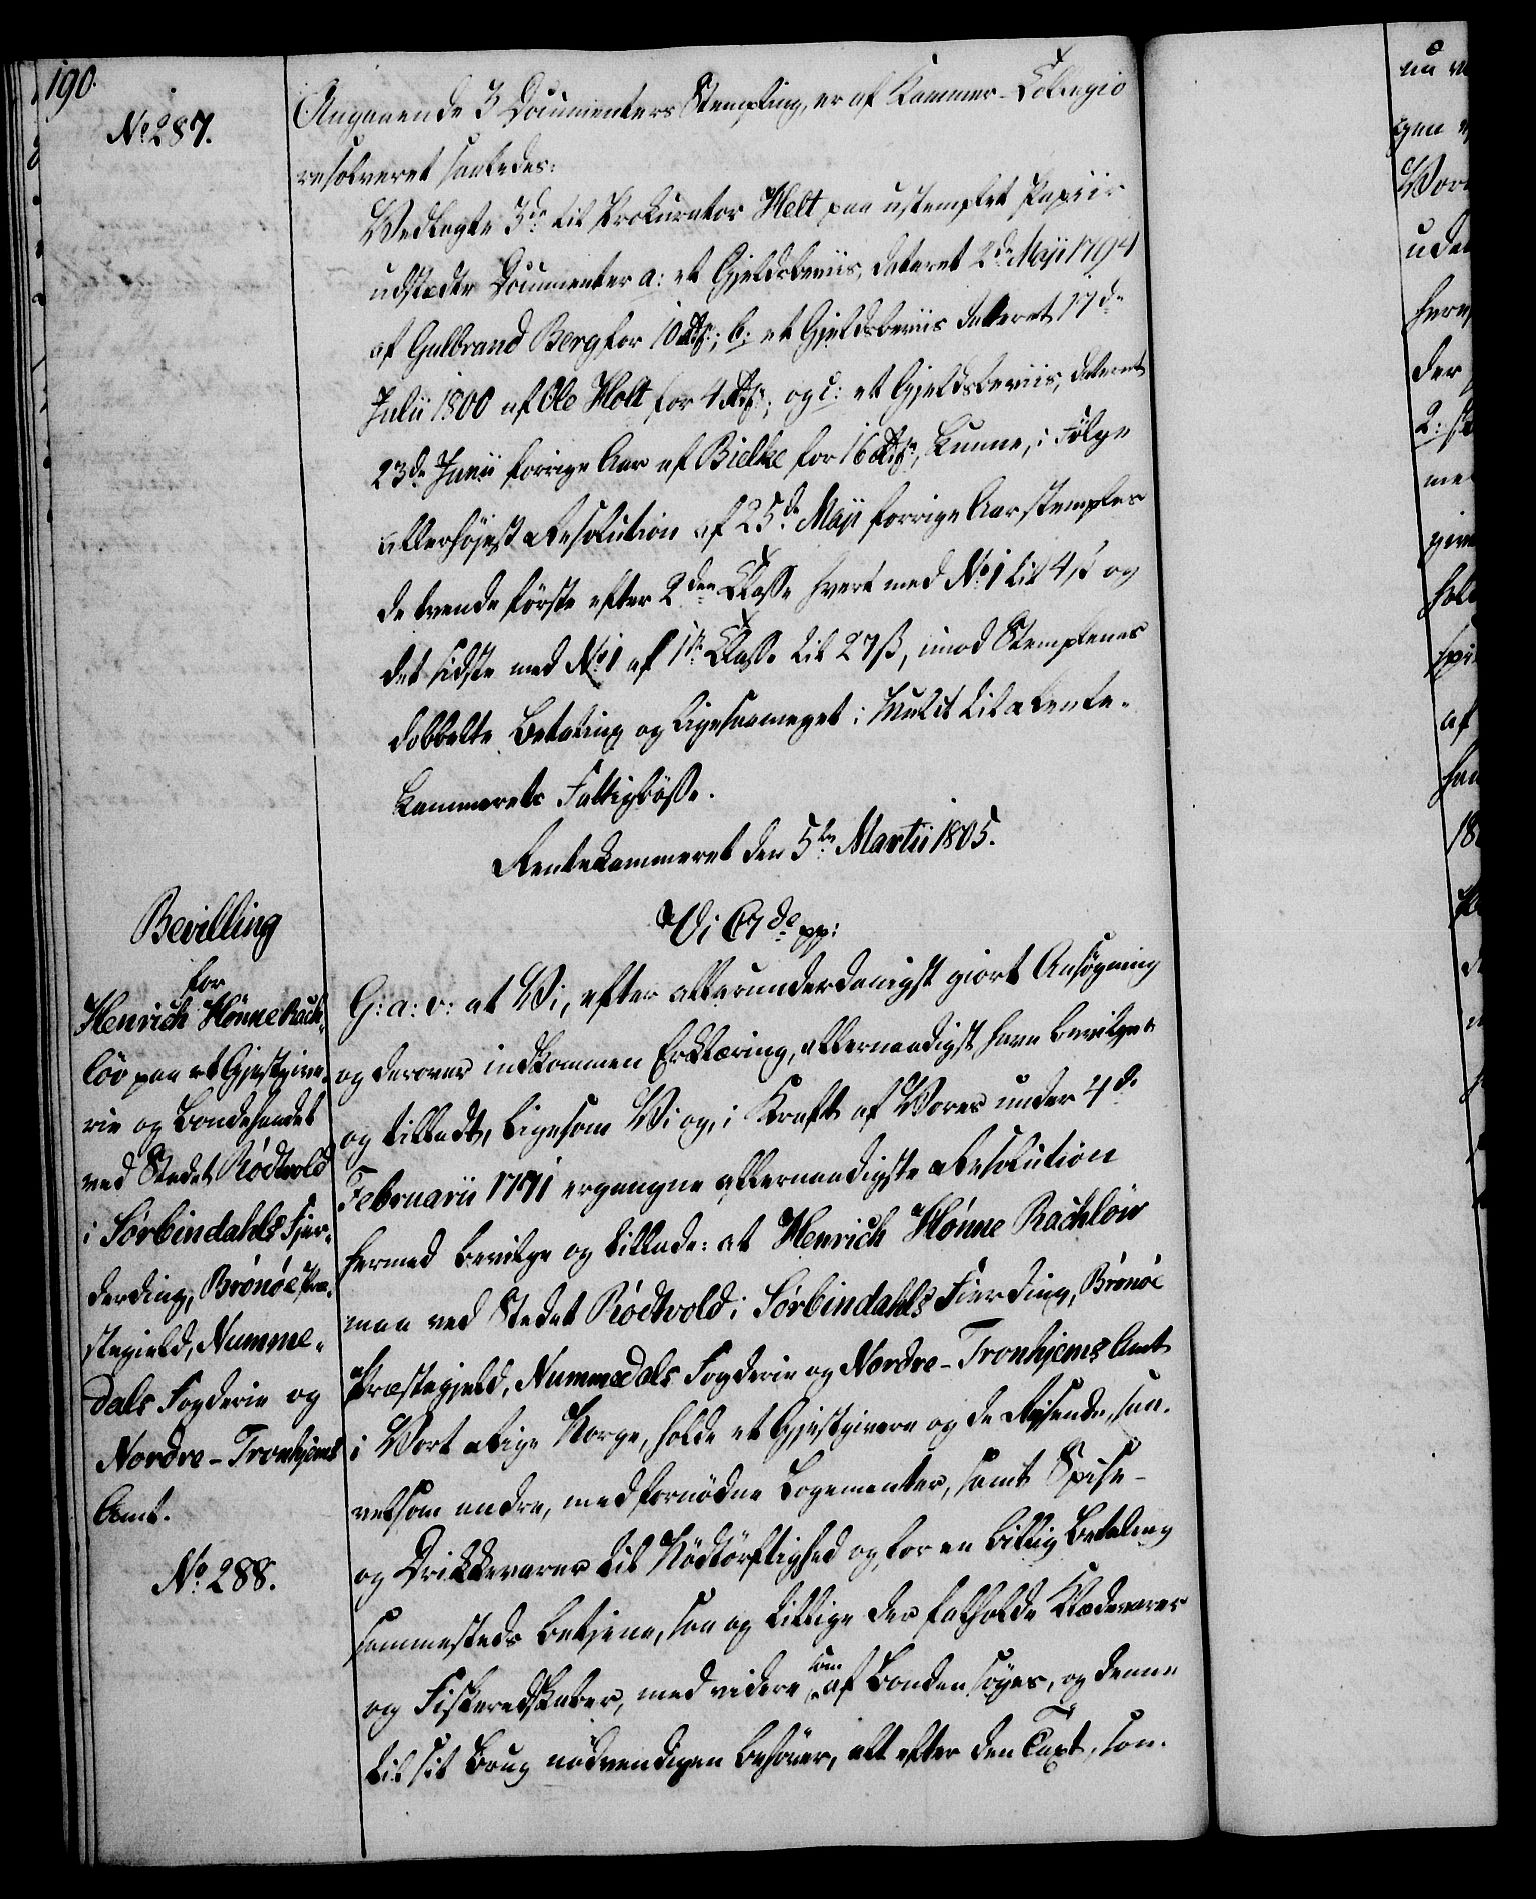 190.
No 287.
Angaaende 3 Documenters Stempling, er af Kammer-Collegio
resolveret saaledes:
Vedlagte 3de til Prokurator Helt paa ustemplet Papiir
udstædte Documenter a: et Gjeldsbeviis, dateret 2de Maji 1794
af Gulbrand Berg for 10 Rdr; b: et Gjeldsbeviis dateret 17de
Julii 1800 af Ole Holt for 4 Rdr; og c: et Gjeldsbeviis, dateret
23de Junii forrige Aar af Bielke for 16 Rdr, kunne, i Følge
allerhøjeste Resolution af 25de Maji forrige Aar stemples
de tvende første efter 2den Classe hvert med No 1 til 4 ß og
det sidste med No 1 af 1ste Classe til 27 ß, imod Stemplenes
dobbelte Betaling og ligesaameget i Mulct til Rente-
kammerets Fattigbøsse.
Rentekammeret den 5te Martii 1805.
Bevilling
for
Henrich Hønne Rach-
löv paa et Gjestgive-
rie og Bondehandel
ved Stedet Rödtvold
i Sørbindahls Fjer-
derding, Brönöe Præ-
stegield, Numme-
dals Fogderie og
Nordre-Tronhjems
Amt.
No 288.
Vi C7de pp:
G: a: v: at Vi, efter allerunderdanigst giort Ansøgning
og derover indkommen Erklæring, allernaadigst have bevilget
og tilladt, ligesom Vi og, i Kraft af Vores under 4de
Februarii 1771 ergangne allernaadigste Resolution
hermed bevilge og tillade: at Henrich Hønne Rachlöw
maa ved Stedet Rödtvold i Sørbindahls Fierding, Brönöe
Præstegjeld, Nummedals Fogderie og Nordre-Tronhjems Amt
i Vort Rige Norge, holde et Gjestgiverie og de Rejsende, saa-
velsom andre, med fornødne Logementer, samt Spise-
og Drikkevarer til Nødtørftighed og for en billig Betaling
sammesteds betjene, saa og tillige der falholde Kladevarer
og Fiskeredskaber, med videre som af Bonden søges, og denne
til sit Brug nødvendigen behøver, alt efter den Taxt, som